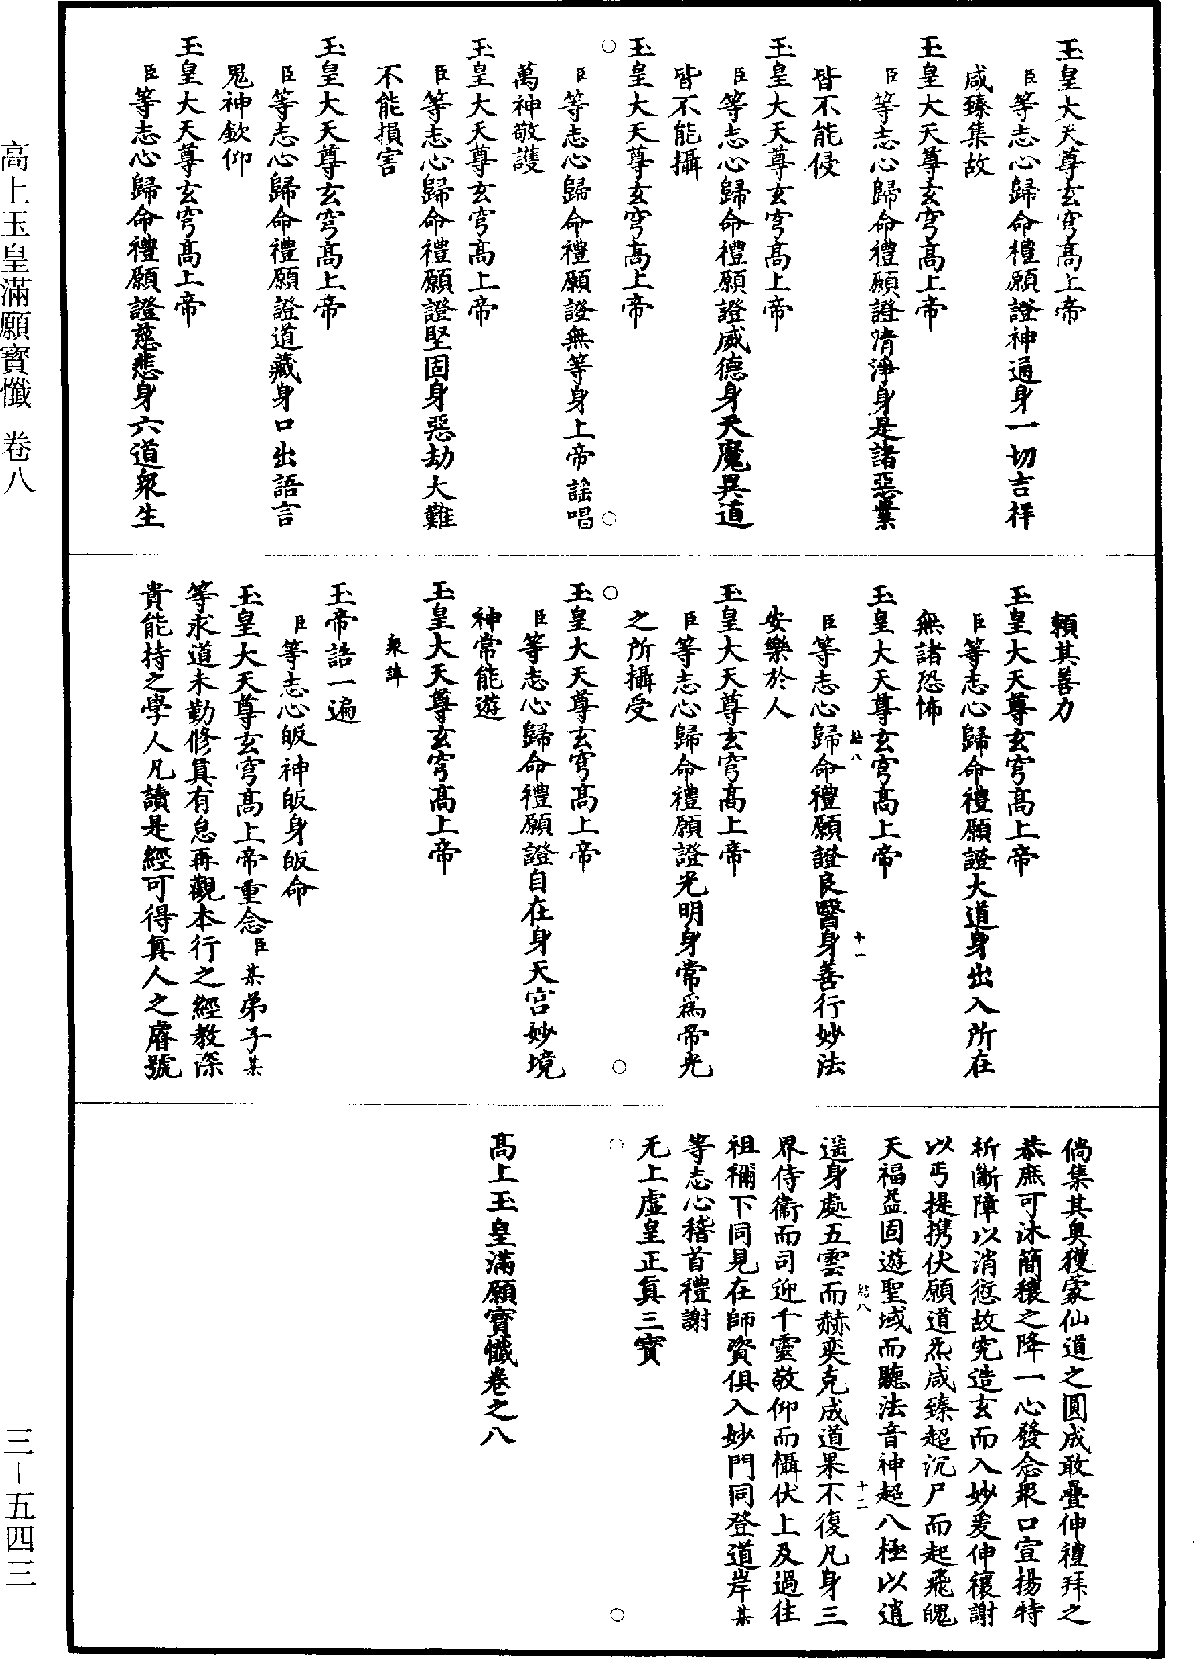 玉皇大天尊玄穹高上帝
臣等志心歸命禮願證神通身一切吉祥
咸臻集故
玉皇大天尊玄穹高上帝
臣等志心歸命禮願證清淨身是諸惡業
皆不能侵
玉皇大天尊玄穹高上帝
臣等志心歸命禮願證威德身天魔異道
皆不能攝
玉皇大天尊玄穹高上帝
臣等志心歸命禮願證無等身上帝謡唱
萬神敬護
玉皇大天尊玄穹高上帝
臣等志心歸命禮願證堅固身惡劫大難
不能損害
玉皇大天尊玄穹高上帝
臣等志心歸命禮願證道藏身口出語言
鬼神欽仰
玉皇大天尊玄穹高上帝
臣等志心歸命禮願證慈悲身六道衆生
賴其善力
玉皇大天尊玄穹高上帝
臣等志心歸命禮願證大道身出入所在
無諸恐怖
玉皇大天尊玄穹高上帝
臣等志心歸命禮願證良醫身善行妙法
安樂於人
玉皇大天尊玄穹高上帝
臣等志心歸命禮願證光明身常爲帝光
之所攝受
玉皇大天尊玄穹高上帝
臣等志心歸命禮願證自在身天宫妙境
神常能遊
玉皇大天尊玄穹高上帝
衆諱
玉帝誥一遍
臣等志心皈神皈身皈命
玉皇大天尊玄穹高上帝重念臣某弟子某
等求道未勤修真有怠再觀本行之經教深
貴能持之學人凡讀是經可得真人之睿號
倘集其奥獲蒙仙道之圓成敢疊伸禮拜之
恭庶可沐簡穰之降一心發念衆口宣揚特
祈斷障以消愆故究造玄而入妙爰伸禳謝
以丐提携伏願道炁咸臻超沉尸而起飛魄
天福益固遊聖域而聽法音神超八極以逍
遥身處五雲而赫奕克成道果不復凡身三
界侍衛而司迎千靈敬仰而懾伏上及過往
祖禰下同見在師資俱入妙門同登道岸某
等志心稽首禮謝
无上虛皇正真三寶
高上玉皇滿願寶懺卷之八
八
十一
八
十二
高上玉皇滿願寶懺 卷八
三-五四三